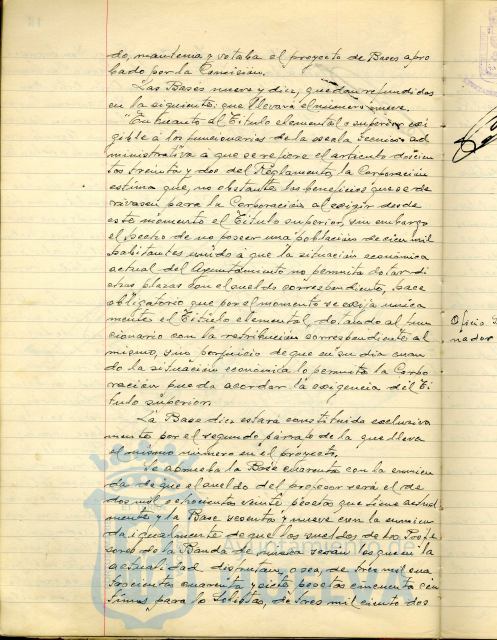 do, mantenia y votaba el proyecto de Bases apro
bado por la Comision.
Las Bases nueve y diez, quedan refundidas
en la siguiente: que llevará el número nueve.
"En cuanto al Titulo elemental o superior exi
gible á los funcionarios de la escala Tecnico ad
ministrativa a que se refiere el articulo doscien
tos treinta y dos del Reglamento la Corporación
estima que, no obstante los beneficios que se de
rivasen para la Corporación al exigir desde
este momento el Titulo superior, sin embargo
el hecho de no poseer una poblacion de cien mil
habitantes unido a que la situación económica
actual del Ayuntamiento no permita dotar di
chas plazas con el sueldo correspondiente, hace
obligatorio que por el momento se exija unica
mente el Titulo elemental, dotando al fun
cionario con la retribucion correspondiente al
mismo, y sin perjuicio de que en su dia cuan
do la situación economica lo permita la Corpo
ración pueda acordar la exigencia del Ti
tulo superior.
La Base diez estará constituida exclusiva
mente por el segundo párrafo de la que lleva
el mismo número en el proyecto.
Se aprueba la Base cuarenta con la enmien
da de que el sueldo del profesor será el de
dos mil setecientas veinte pesetas que tiene actual
mente y la Base sesenta y nueve con la enmien
da igualmente de que los sueldos de los Profe
sores de la Banda de musica serán los que en la
actualidad disfrutan, o sea, de tres mil cua
trocientas cuarenta y siete pesetas cincuenta cén
timos para los Solistas, de tres mil ciento dos
Oficio
nador